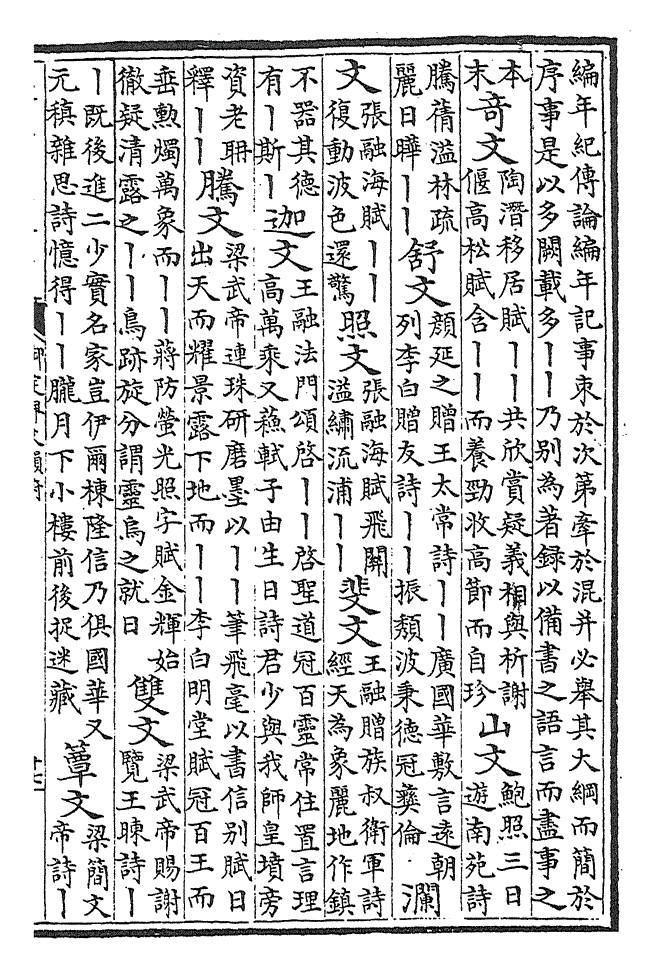 編年紀傳論編年記事束於次第牽於混并必舉其大綱而簡於
序事是以多闕載多丨丨乃別為著録以備書之語言而盡事之
本
末
竒文
陶潛移居賦丨丨共欣賞疑義相與析謝
偃高松賦含丨丨而養勁收高節而自珍
山文
鮑照三日
遊南苑詩
騰蒨溢林疏
麗日曄丨丨
舒文
顔延之贈王太常詩丨丨廣國華敷言逺朝
列李白贈友詩丨丨振頽波秉德冠彝倫
瀾
文
張融海賦丨丨
復動波色還驚
照文
張融海賦飛關
溢繡流浦丨丨
斐文
王融贈族叔衛軍詩
經天為象麗地作鎮
不器其德
有丨斯丨
迦文
王融法門頌啓丨丨啓聖道冠百靈常住置言理
高萬乘又蘓軾子由生日詩君少與我師皇墳旁
資老聃
釋丨丨
騰文
梁武帝連珠研磨墨以丨丨筆飛毫以書信别賦日
出天而耀景露下地而丨丨李白明堂賦冠百王而
垂勲燭萬象而丨丨蔣防螢光照字賦金輝始
徹疑清露之丨丨鳥跡旋分謂靈烏之就日
雙文
梁武帝賜謝
覽王暕詩丨
丨既後進二少實名家豈伊爾棟隆信乃俱國華又
元稹雜思詩憶得丨丨朧月下小樓前後捉迷藏
蕈文
梁簡文
帝詩丨